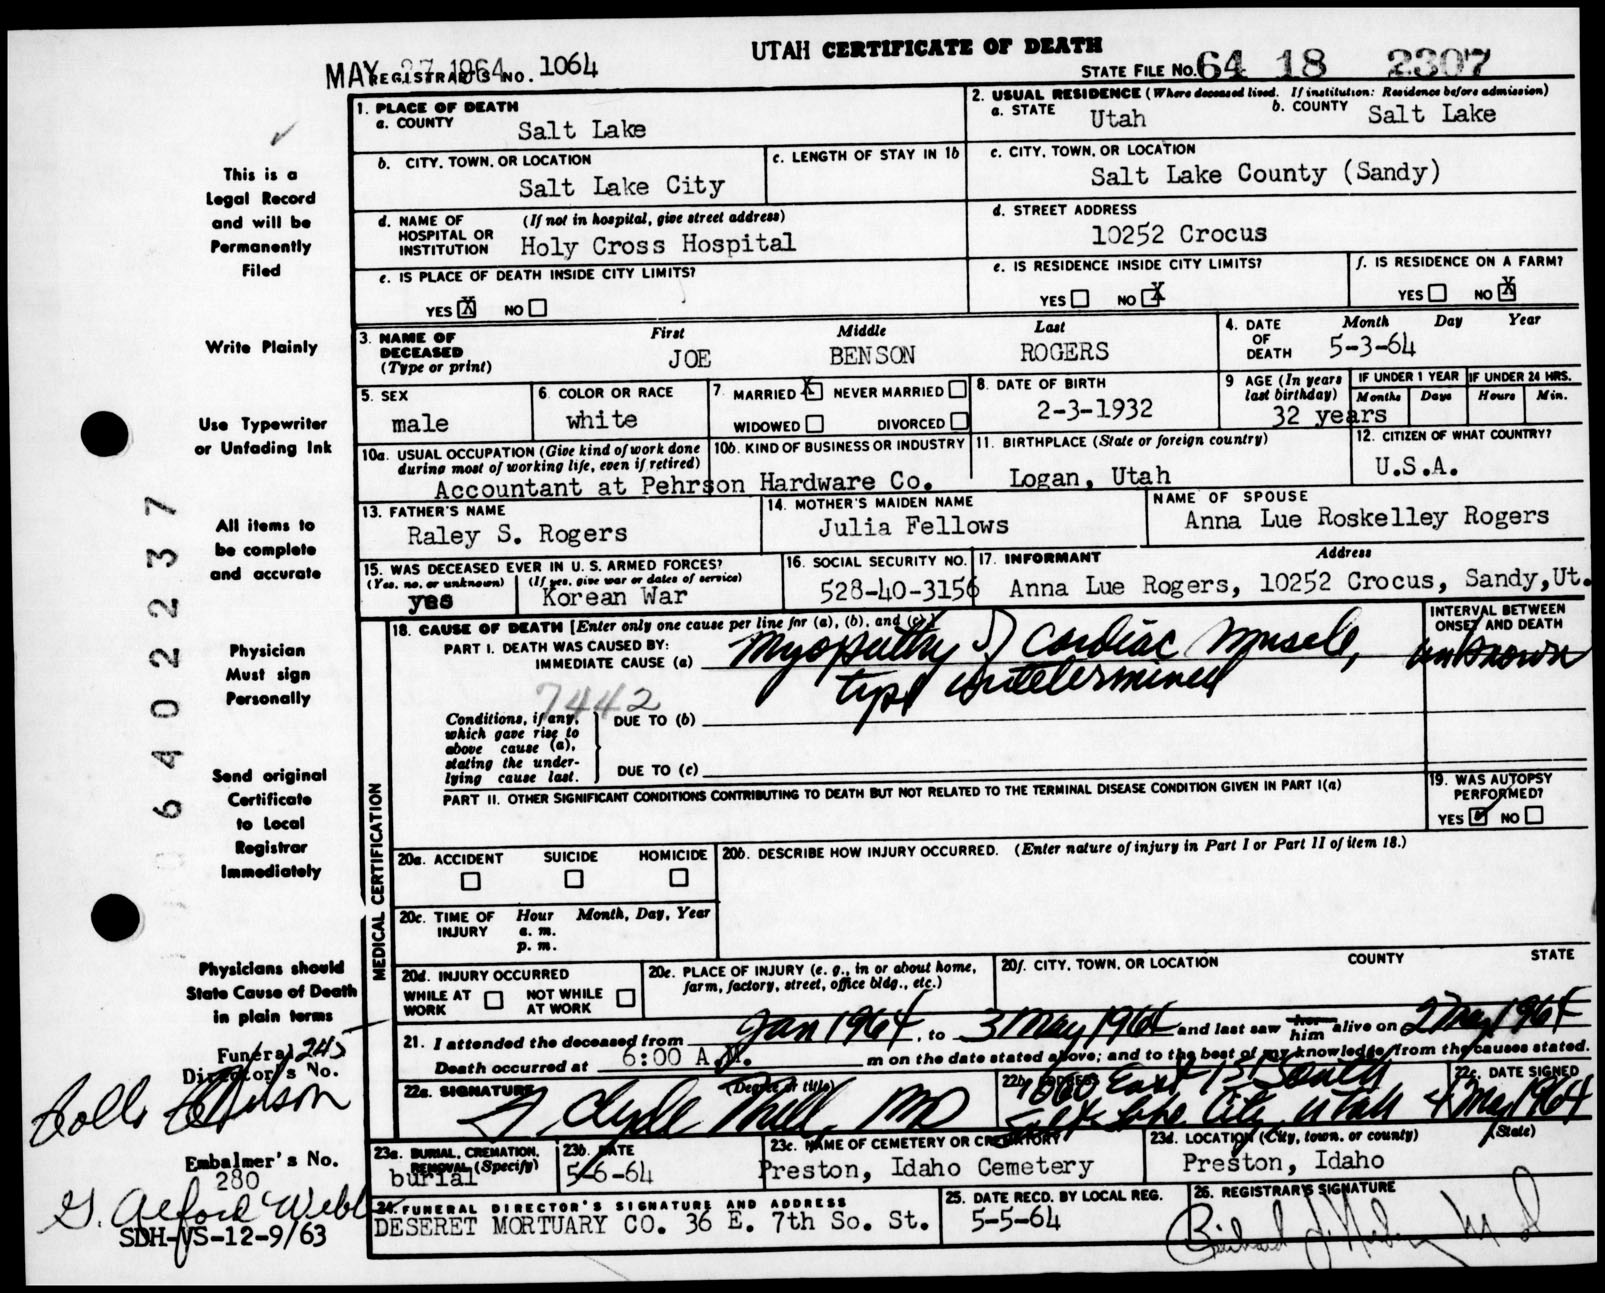 UTAH CERTIFICATE OF DEATH
MAY 27 1964 REGISTRAR'S NO. 1064
STATE FILE NO. 64 18 2307
1. PLACE OF DEATH
a. COUNTY
Salt Lake
2. USUAL RESIDENCE (Where deceased lived. If institution: Residence before admission)
a. STATE Utah b. COUNTY Salt Lake
b. CITY, TOWN, OR LOCATION
Salt Lake City
c. LENGTH OF STAY IN 1b
c. CITY, TOWN, OR LOCATION
Salt Lake County (Sandy)
d. NAME OF HOSPITAL OR INSTITUTION (If not in hospital, give street address)
Holy Cross Hospital
d. STREET ADDRESS
10252 Crocus
e. IS PLACE OF DEATH INSIDE CITY LIMITS?
YES X NO
e. IS RESIDENCE INSIDE CITY LIMITS?
YES NO X
f. IS RESIDENCE ON A FARM?
YES NO X
3. NAME OF DECEASED (Type or print)
First Middle Last
JOE BENSON ROGERS
4. DATE OF DEATH Month Day Year
5-3-64
5. SEX
male
6. COLOR OR RACE
white
7. MARRIED X NEVER MARRIED
WIDOWED DIVORCED
8. DATE OF BIRTH
2-3-1932
9 AGE (In years last birthday)
32 years
IF UNDER 1 YEAR
Months Days
IF UNDER 24 HRS.
Hours Min.
10a. USUAL OCCUPATION (Give kind of work done during most of working life, even if retired)
10b. KIND OF BUSINESS OR INDUSTRY
Accountant at Pehrson Hardware Co.
11. BIRTHPLACE (State or foreign country)
Logan, Utah
12. CITIZEN OF WHAT COUNTRY?
U.S.A.
13. FATHER'S NAME
Raley S. Rogers
14. MOTHER'S MAIDEN NAME
Julia Fellows
NAME OF SPOUSE
Anna Lue Roskelley Rogers
15. WAS DECEASED EVER IN U. S. ARMED FORCES?
(Yes, no, or unknown) (If yes, give war or dates of service)
yes Korean War
16. SOCIAL SECURITY NO.
528-40-3156
17. INFORMANT Address
Anna Lue Rogers, 10252 Crocus, Sandy, Ut.
MEDICAL CERTIFICATION
18. CAUSE OF DEATH [Enter only one cause per line for (a), (b), and (c)]
PART I. DEATH WAS CAUSED BY:
IMMEDIATE CAUSE (a) Myopathy of cardiac muscle,
type undetermined
INTERVAL BETWEEN ONSET AND DEATH
unknown
7442
Conditions, if any, which gave rise to above cause (a), stating the underlying cause last.
DUE TO (b)
DUE TO (c)
PART II. OTHER SIGNIFICANT CONDITIONS CONTRIBUTING TO DEATH BUT NOT RELATED TO THE TERMINAL DISEASE CONDITION GIVEN IN PART I(a)
19. WAS AUTOPSY PERFORMED?
YES ✓ NO
20a. ACCIDENT SUICIDE HOMICIDE
20b. DESCRIBE HOW INJURY OCCURRED. (Enter nature of injury in Part I or Part II of item 18.)
20c. TIME OF INJURY Hour Month, Day, Year
a. m.
p. m.
20d. INJURY OCCURRED
WHILE AT WORK NOT WHILE AT WORK
20e. PLACE OF INJURY (e. g., in or about home, farm, factory, street, office bldg., etc.)
20f. CITY, TOWN, OR LOCATION COUNTY STATE
21. I attended the deceased from Jan 1964, to 3 May 1964 and last saw her him alive on 2 May 1964
Death occurred at 6:00 A.M. m on the date stated above; and to the best of my knowledge from the causes stated.
22a. SIGNATURE (Degree or title)
MD
22b. ADDRESS
East 1st South
Salt Lake City, Utah
22c. DATE SIGNED
4 May 1964
23a. BURIAL, CREMATION, REMOVAL (Specify)
burial
23b. DATE
5-6-64
23c. NAME OF CEMETERY OR CREMATORY
Preston, Idaho Cemetery
23d. LOCATION (City, town, or county) (State)
Preston, Idaho
24. FUNERAL DIRECTOR'S SIGNATURE AND ADDRESS
DESERET MORTUARY CO. 36 E. 7th So. St.
25. DATE RECD. BY LOCAL REG.
5-5-64
26. REGISTRAR'S SIGNATURE
This is a
Legal Record
and will be
Permanently
Filed
Write Plainly
Use Typewriter
or Unfading Ink
All items to
be complete
and accurate
Physician
Must sign
Personally
Send original
Certificate
to Local
Registrar
Immediately
Physicians should
State Cause of Death
in plain terms
Funeral 245
Director's No.
Embalmer's No.
280
G. Alford Webb
SDH-VS-12-9/63
6402237